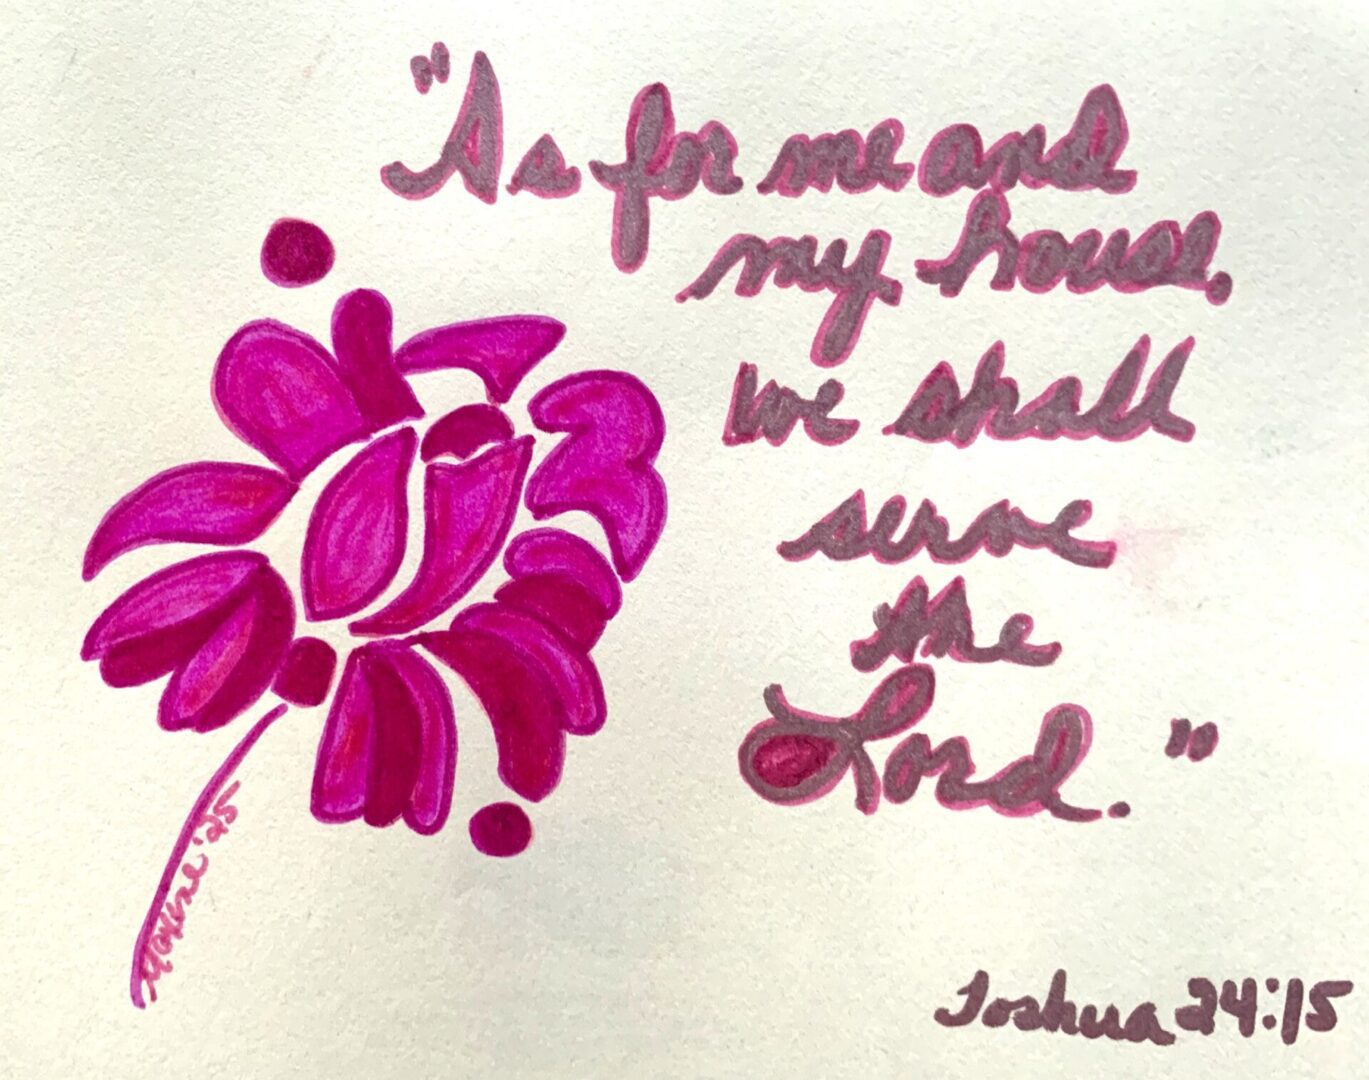 "As for me and
my house,
we shall
serve
the
Lord."
'25
Joshua 24:15